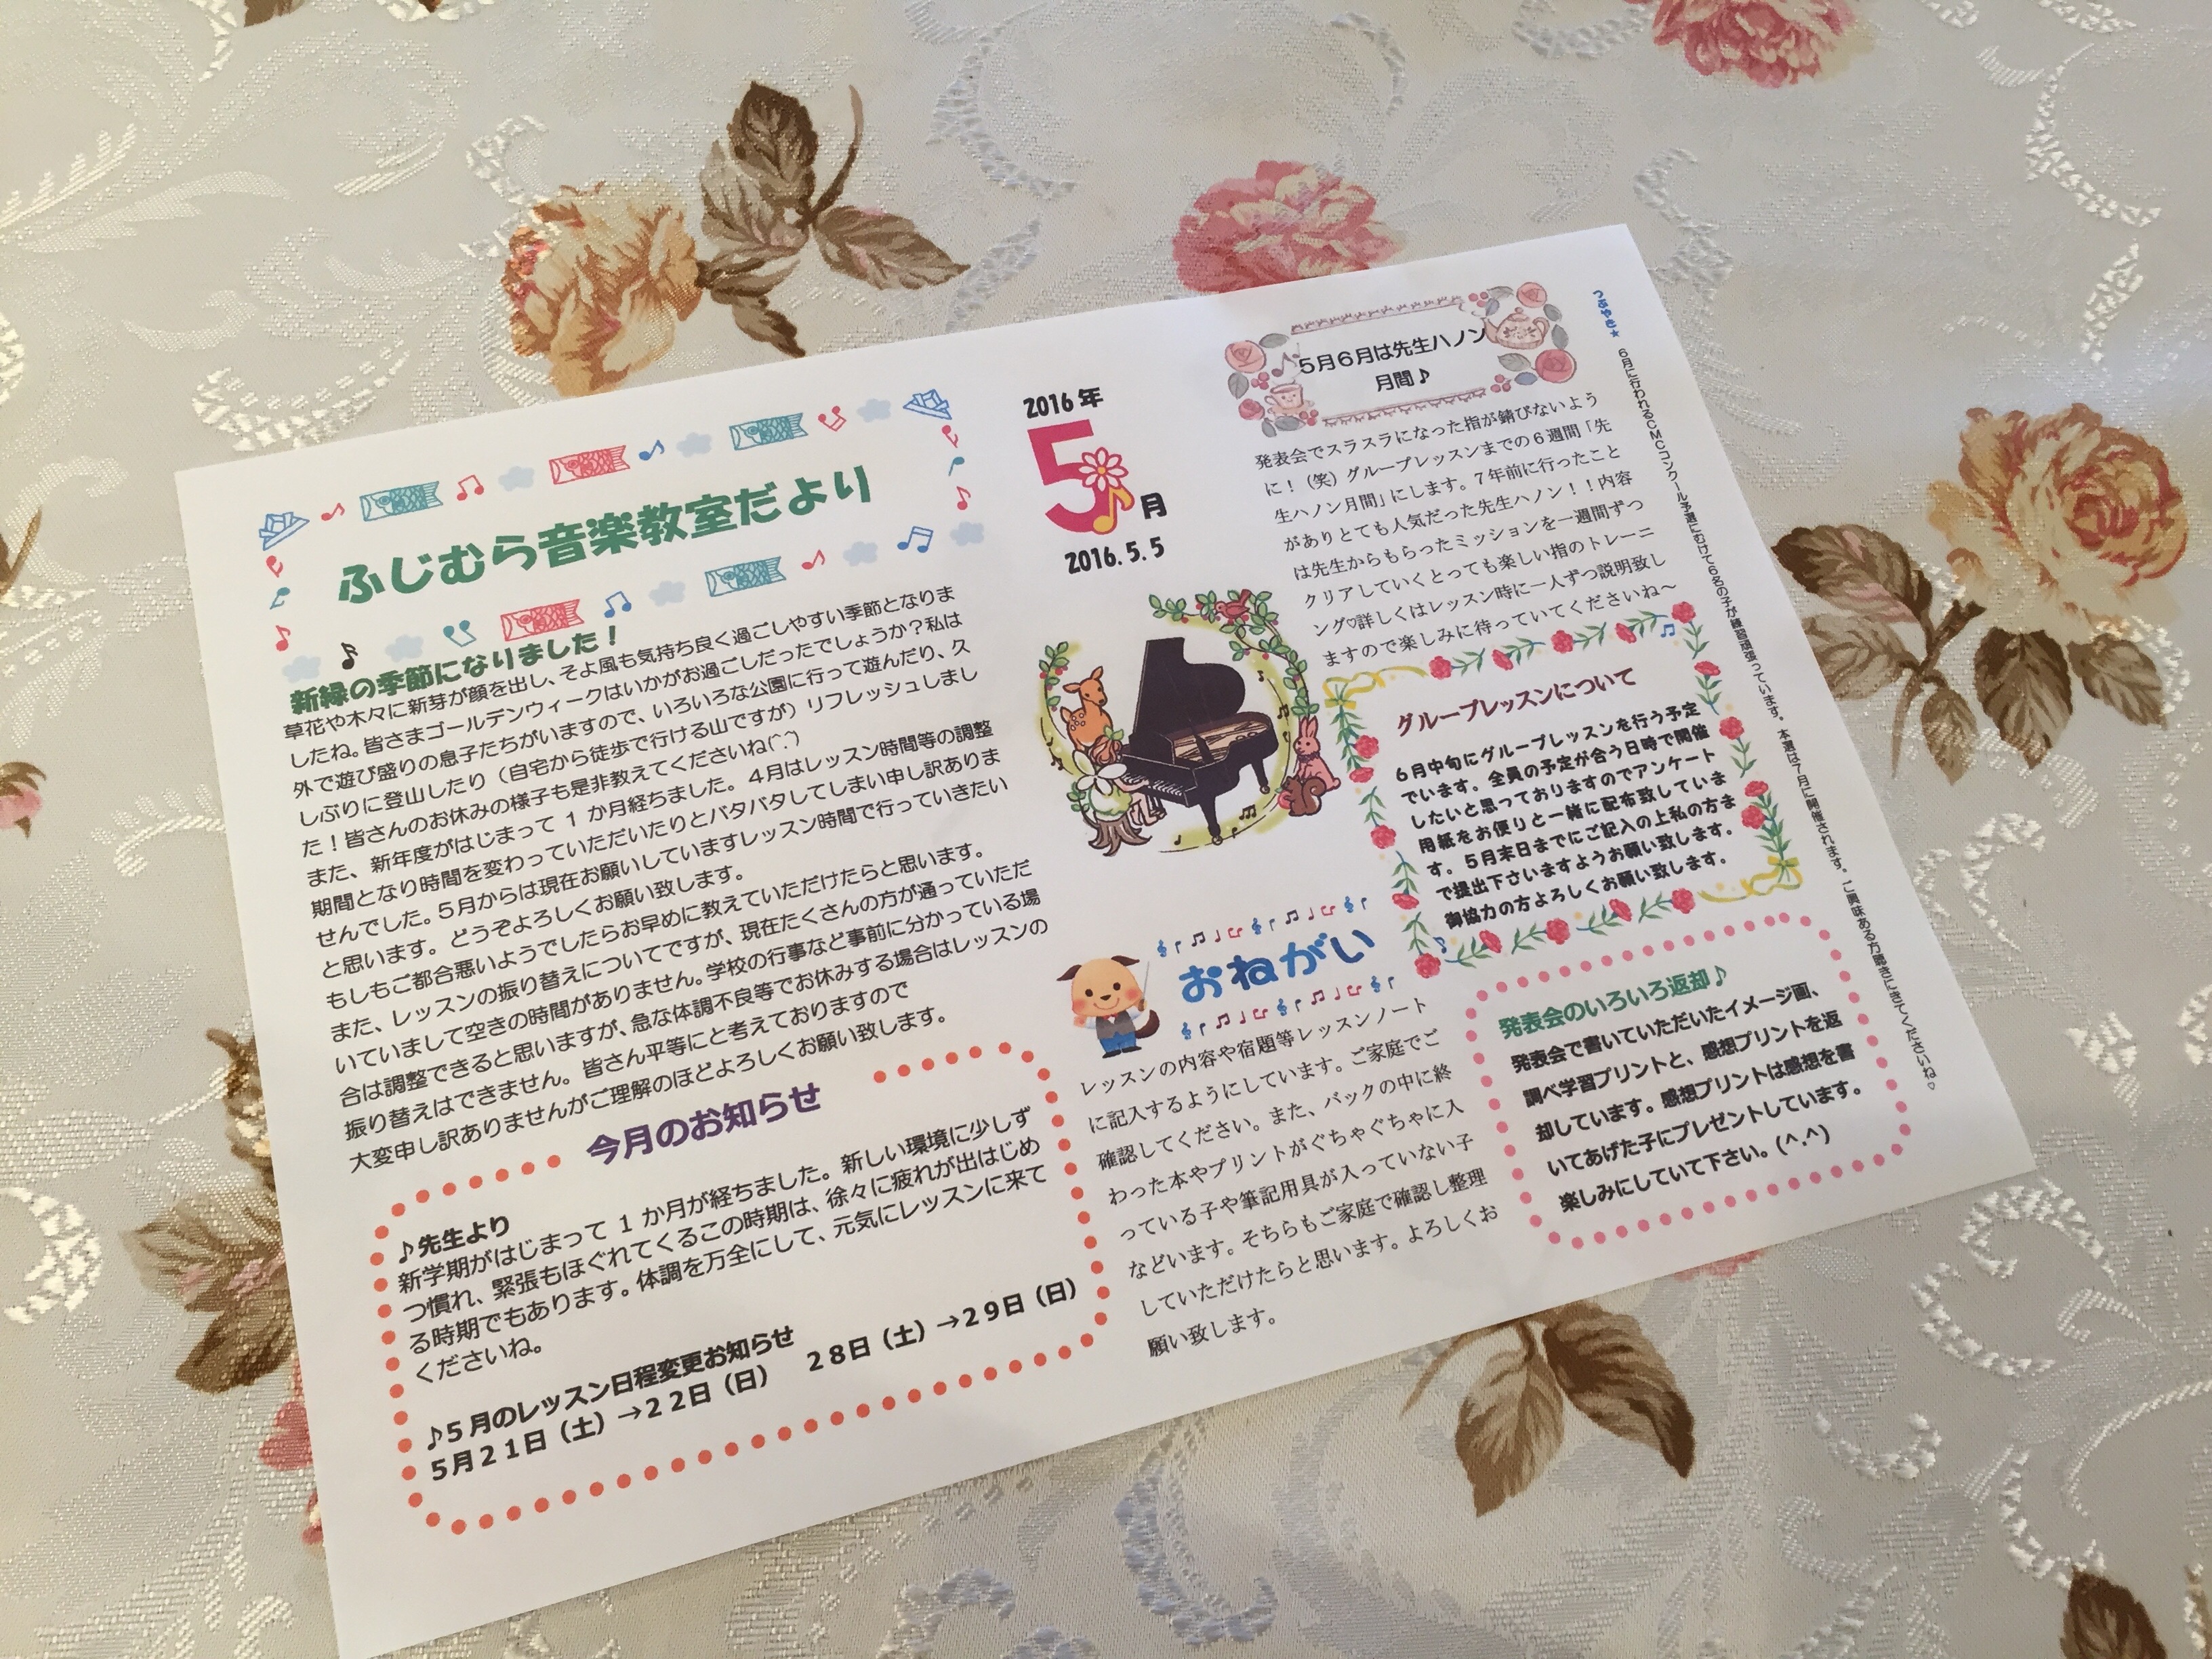 ふじむら音楽教室だより
2016年
5月
2016.5.5
新緑の季節になりました！
草花や木々に新芽が顔を出し、そよ風も気持ち良く過ごしやすい季節となりま
したね。皆さまゴールデンウィークはいかがお過ごしだったでしょうか？私は
外で遊び盛りの息子たちがいますので、いろいろな公園に行って遊んだり、久
しぶりに登山したり（自宅から徒歩で行ける山ですが）リフレッシュしまし
た！皆さんのお休みの様子も是非教えてくださいね(^.^)
また、新年度がはじまって１か月経ちました。４月はレッスン時間等の調整
期間となり時間を変わっていただいたりとバタバタしてしまい申し訳ありま
せんでした。５月からは現在お願いしていますレッスン時間で行っていきたい
と思います。どうぞよろしくお願い致します。
もしもご都合悪いようでしたらお早めに教えていただけたらと思います。
また、レッスンの振り替えについてですが、現在たくさんの方が通っていただ
いていまして空きの時間がありません。学校の行事など事前に分かっている場
合は調整できると思いますが、急な体調不良等でお休みする場合はレッスンの
振り替えはできません。皆さん平等にと考えておりますので
大変申し訳ありませんがご理解のほどよろしくお願い致します。
今月のお知らせ
♪先生より
新学期がはじまって１か月が経ちました。新しい環境に少しず
つ慣れ、緊張もほぐれてくるこの時期は、徐々に疲れが出はじめ
る時期でもあります。体調を万全にして、元気にレッスンに来て
くださいね。
♪５月のレッスン日程変更お知らせ
５月２１日（土）→２２日（日）　２８日（土）→２９日（日）
５月６月は先生ハノン
月間♪
発表会でスラスラになった指が錆びないよう
に！（笑）グループレッスンまでの６週間「先
生ハノン月間」にします。７年前に行ったこと
がありとても人気だった先生ハノン！！内容
は先生からもらったミッションを一週間ずつ
クリアしていくとっても楽しい指のトレーニ
ング♡詳しくはレッスン時に一人ずつ説明致し
ますので楽しみに待っていてくださいね〜
グループレッスンについて
６月中旬にグループレッスンを行う予定
でいます。全員の予定が合う日時で開催
したいと思っておりますのでアンケート
用紙をお便りと一緒に配布致していま
す。５月末日までにご記入の上私の方ま
で提出下さいますようお願い致します。
御協力の方よろしくお願い致します。
おねがい
レッスンの内容や宿題等レッスンノート
に記入するようにしています。ご家庭でご
確認してください。また、バックの中に終
わった本やプリントがぐちゃぐちゃに入
っている子や筆記用具が入っていない子
などいます。そちらもご家庭で確認し整理
していただけたらと思います。よろしくお
願い致します。
発表会のいろいろ返却♪
発表会で書いていただいたイメージ画、
調べ学習プリントと、感想プリントを返
却しています。感想プリントは感想を書
いてあげた子にプレゼントしています。
楽しみにしていて下さい。(^.^)
つぶやき★　６月に行われるＣＭＣコンクール予選にむけて６名の子が練習頑張っています。本選は７月に開催されます。ご興味ある方聴きにきてくださいね♡